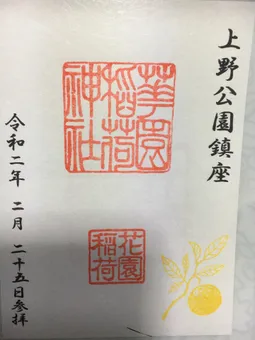 上野公園鎮座
華園
稲荷
神社
花園
稲荷
令和二年 二月 二十五日参拝